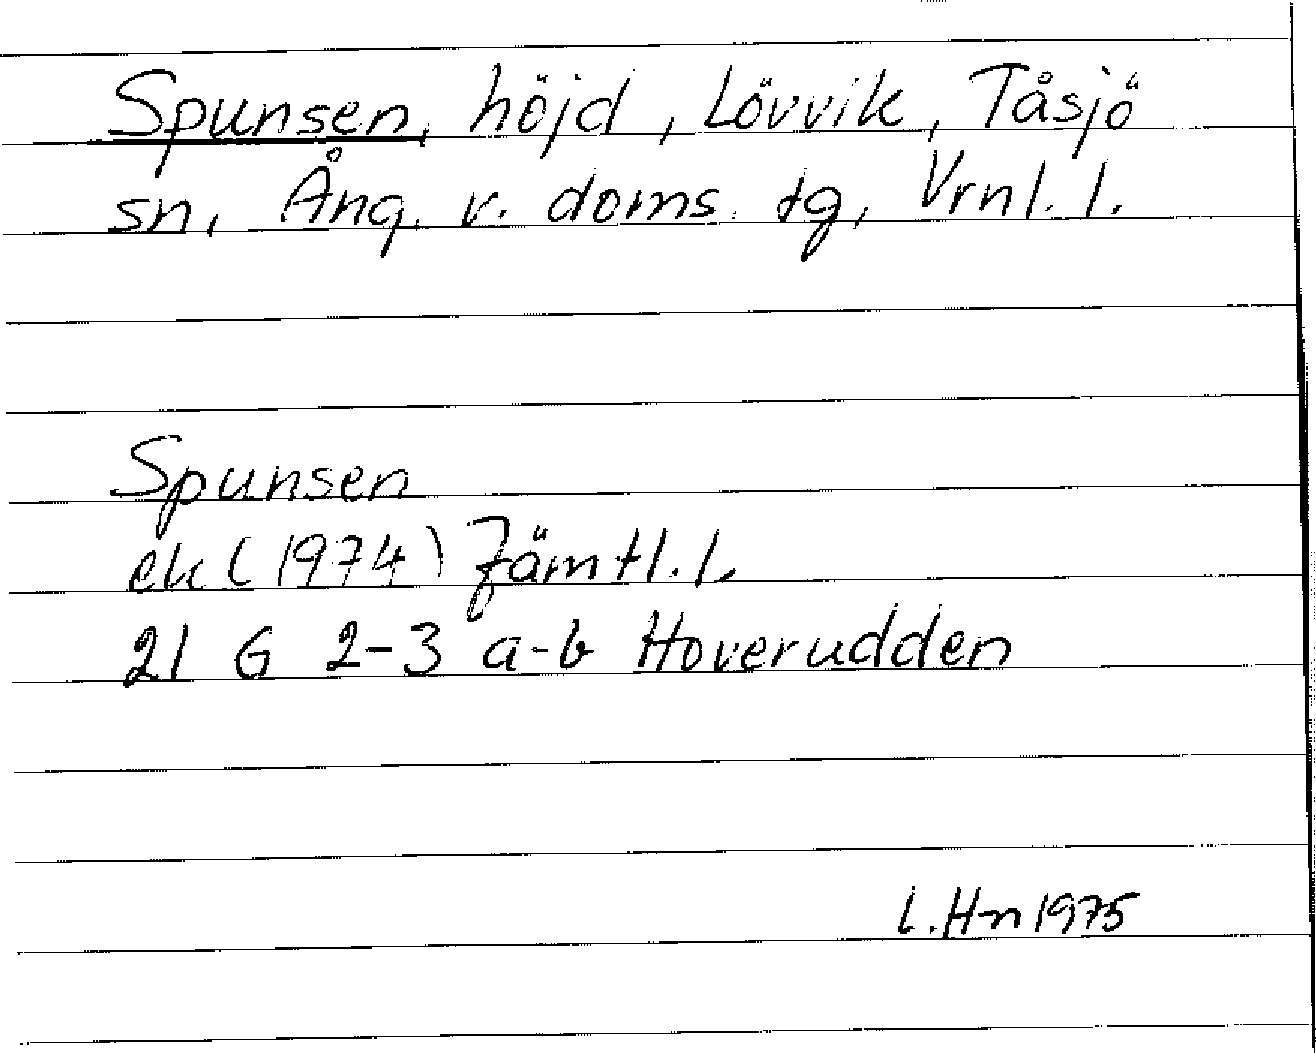 Spunsen, höjd, Lövvik, Tåsjö
sn, Ång. v. doms. tg, Vrnl. l.
Spunsen
ek (1974) Jämtl. l.
21 G 2-3 a-b Hoverudden
L. Hn 1975